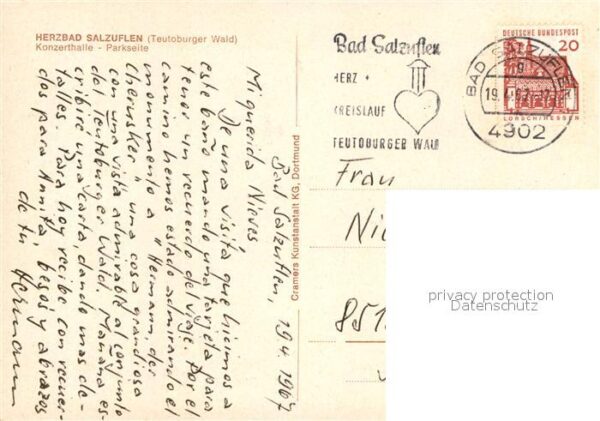 HERZBAD SALZUFLEN (Teutoburger Wald)
Konzerthalle - Parkseite
Bad Salzuflen, 19.4.1967
Mi querida Nieves
De una visita que hicimos a
este baño mando una tarjeta para
tener un recuerdo del viaje. Por el
camino hemos estado admirando el
monumento a "Hermann, der
Cherusker" una cosa grandiosa
con una vista admirable al conjunto
del Teutoburger Wald. Mañana es-
cribiré una carta, dando mas de-
talles. Para hoy recibe con recuer-
dos para Annita, besos y abrazos
de tu Hermann
Cramers Kunstanstalt KG, Dortmund
Bad Salzuflen
HERZ +
KREISLAUF
TEUTOBURGER WALD
BAD SALZUFLEN
a
19.4.67
4902
DEUTSCHE BUNDESPOST
20
LORSCH/HESSEN
Frau
Ni
851
privacy protection
Datenschutz